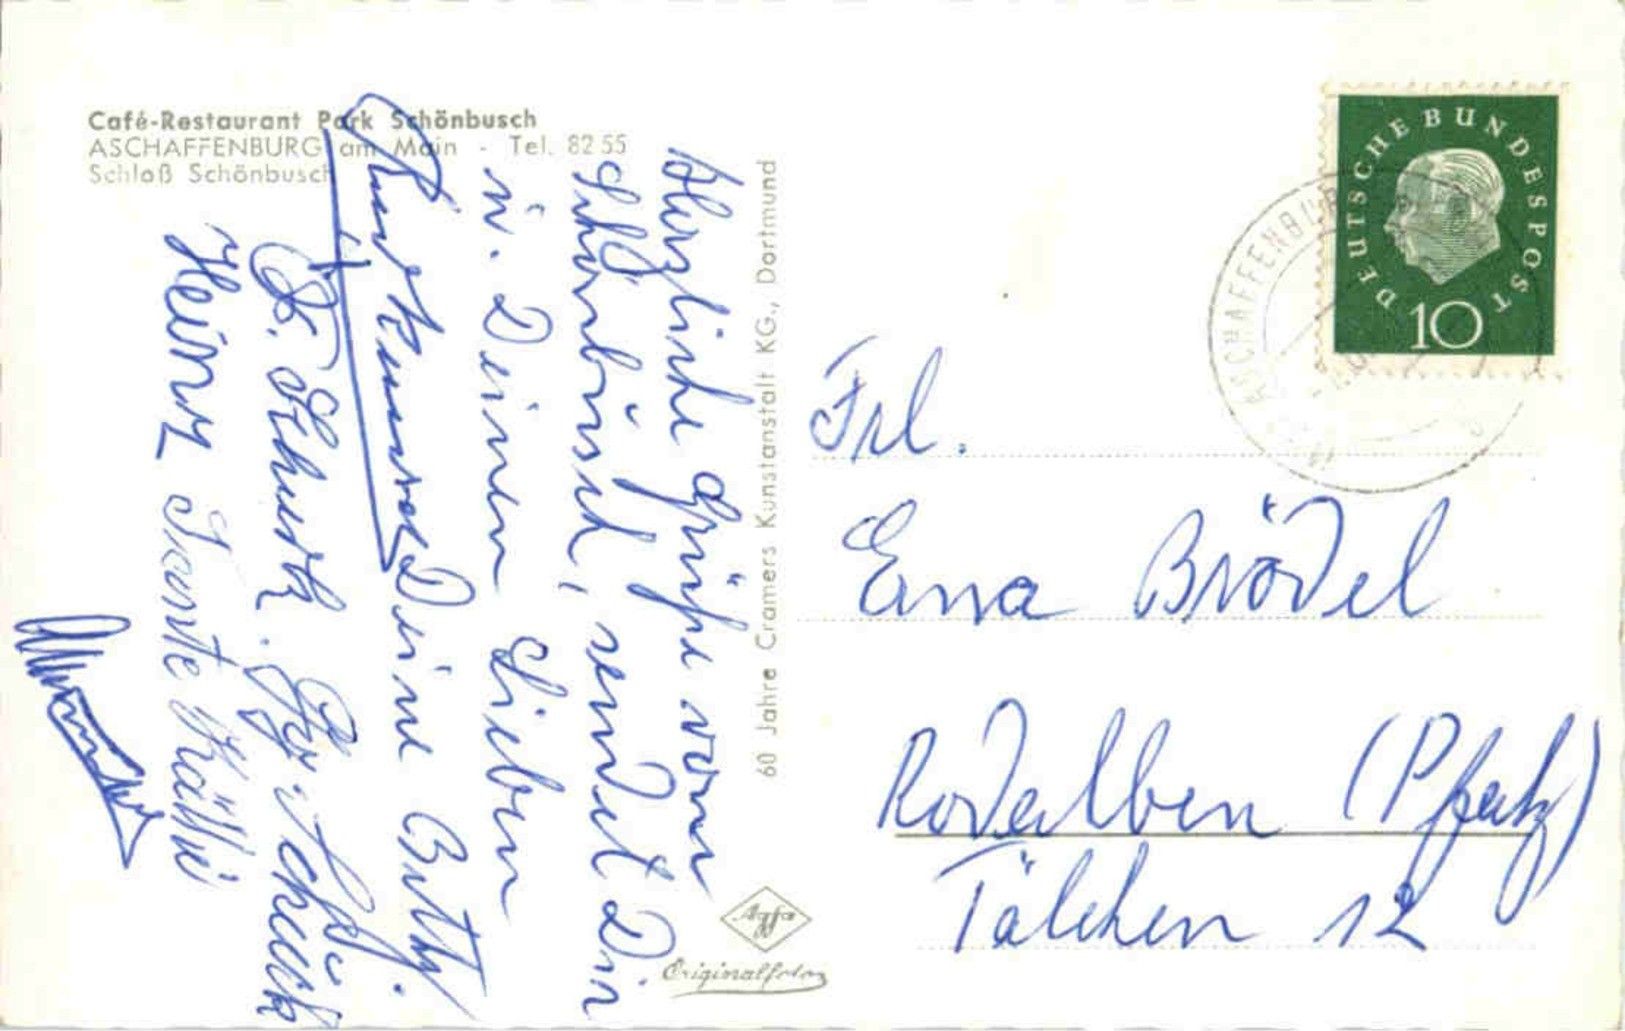 Café-Restaurant Park Schönbusch
ASCHAFFENBURG am Main - Tel. 82 55
Schloß Schönbusch
Herzliche Grüße vom
Schönbusch, sendet Dir
u. Deinen Lieben
Deine Betty.
Heinz Tante Käthi
60 Jahre Cramers Kunstanstalt KG., Dortmund
Agfa
Originalfoto
DEUTSCHE BUNDESPOST
10
ASCHAFFENBURG
Frl.
Erna Brödel
Rodalben (Pfalz)
Tälchen 12